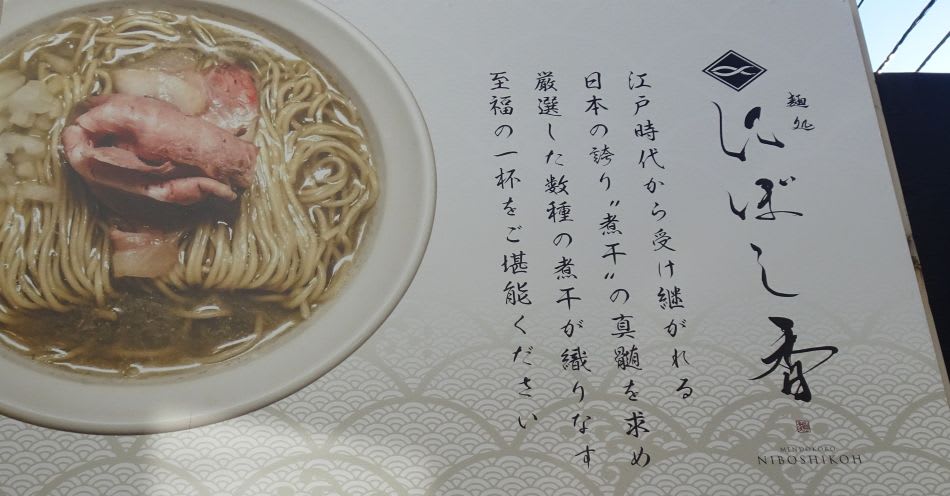 麺処
にぼし香
MENDOKORO
NIBOSHIKOH
江戸時代から受け継がれる
日本の誇り〝煮干〟の真髄を求め
厳選した数種の煮干が織りなす
至福の一杯をご堪能ください